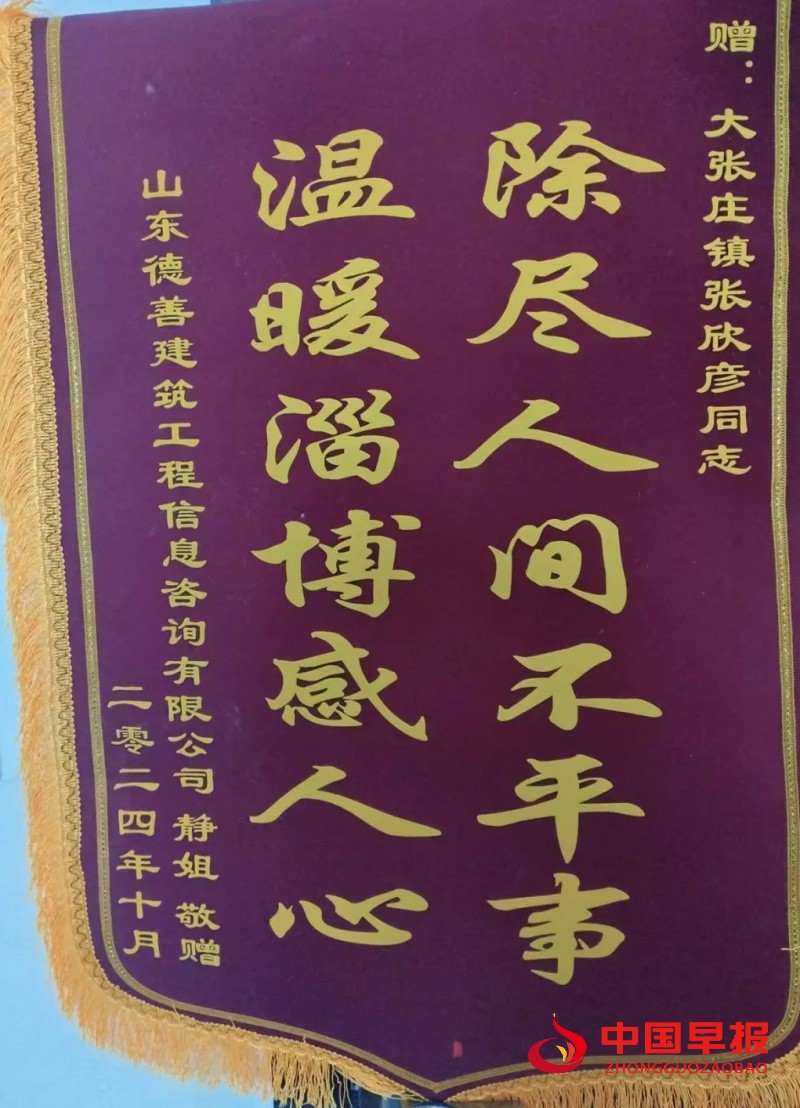 赠：大张庄镇张欣彦同志
除尽人间不平事
温暖淄博感人心
山东德善建筑工程信息咨询有限公司 静姐 敬赠
二零二四年十月
中国早报
ZHONGGUOZAOBAO